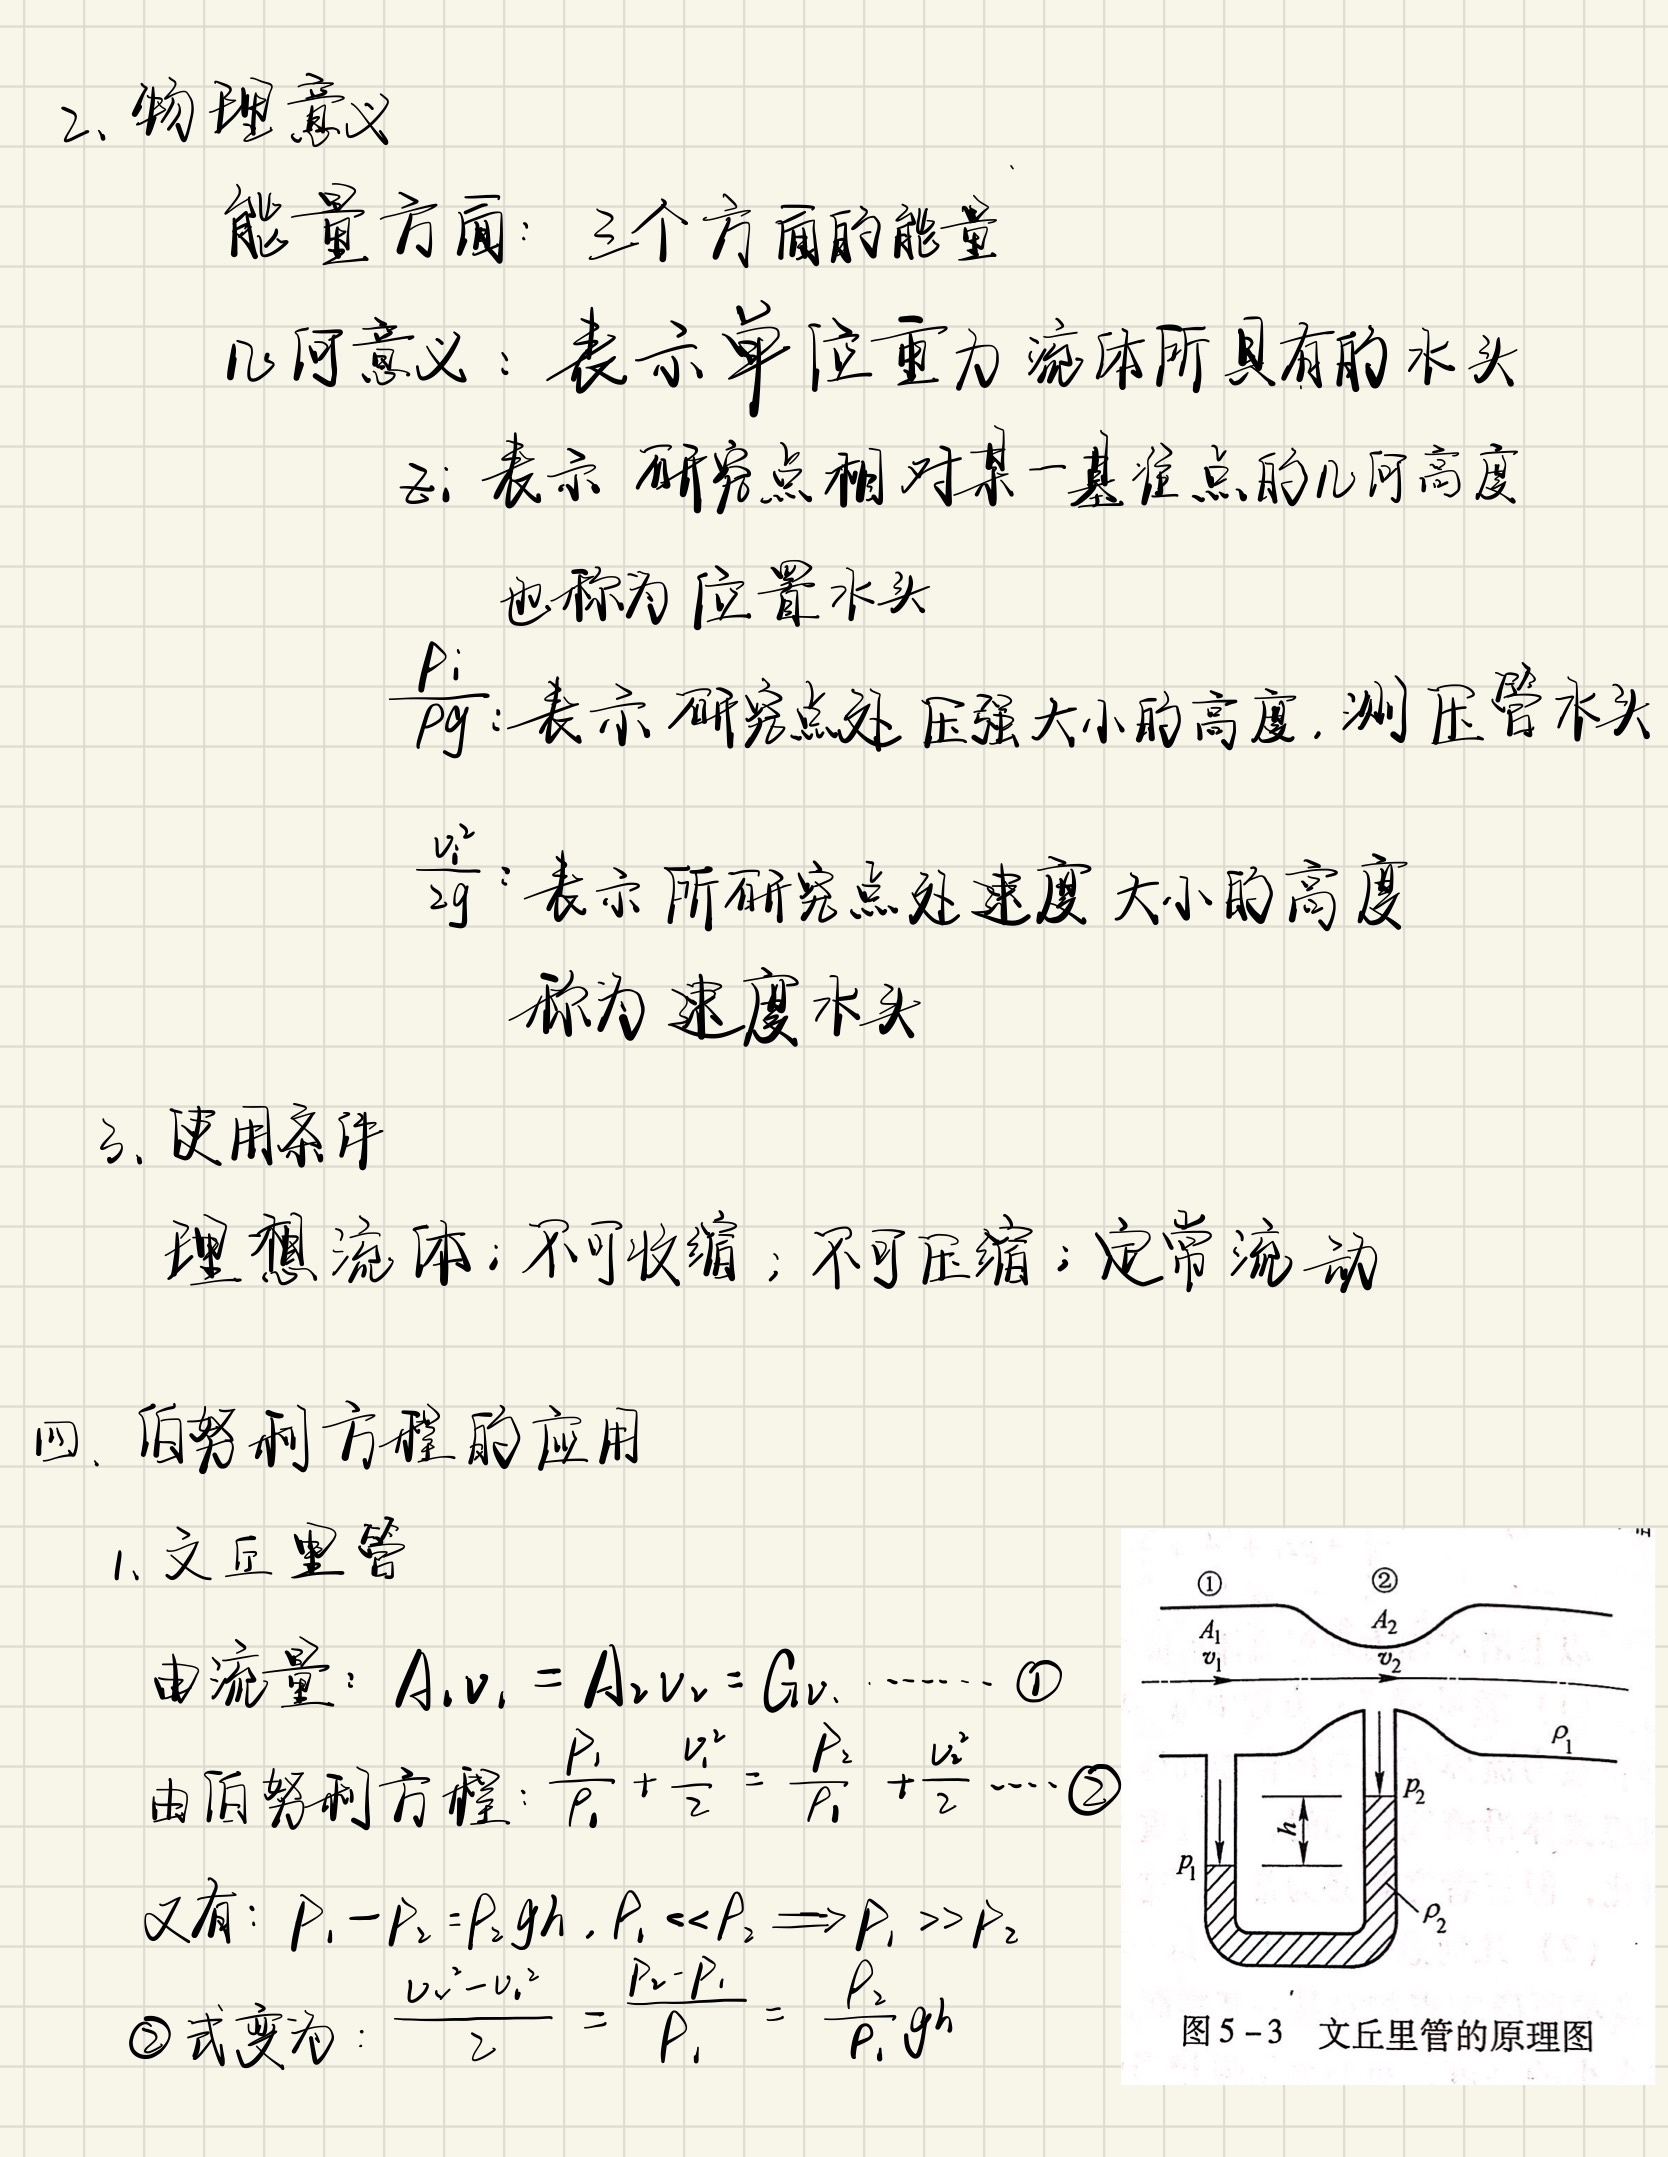 2、物理意义
能量方面：三个方面的能量
几何意义：表示单位重力流体所具有的水头
Zi 表示研究点相对某一基准点的几何高度
也称为位置水头
Pi/ρg：表示研究点处压强大小的高度，测压管水头
vi²/2g：表示所研究点处速度大小的高度
称为速度水头
3、使用条件
理想流体；不可收缩；不可压缩；定常流动
四、伯努利方程的应用
1、文丘里管
由流量：A₁v₁ = A₂v₂ = Gv. ········ ①
由伯努利方程：P₁/ρ₁ + v₁²/2 = P₂/ρ₁ + v₂²/2 ····· ②
又有：P₁-P₂=ρ₂gh，ρ₁<<ρ₂ ⟹ P₁>>P₂
②式变为：(v₂²-v₁²)/2 = (P₂-P₁)/ρ₁ = ρ₂/ρ₁ gh
① ②
A₁ A₂
v₁ v₂
ρ₁
p₂
h
p₁
ρ₂
图5-3 文丘里管的原理图